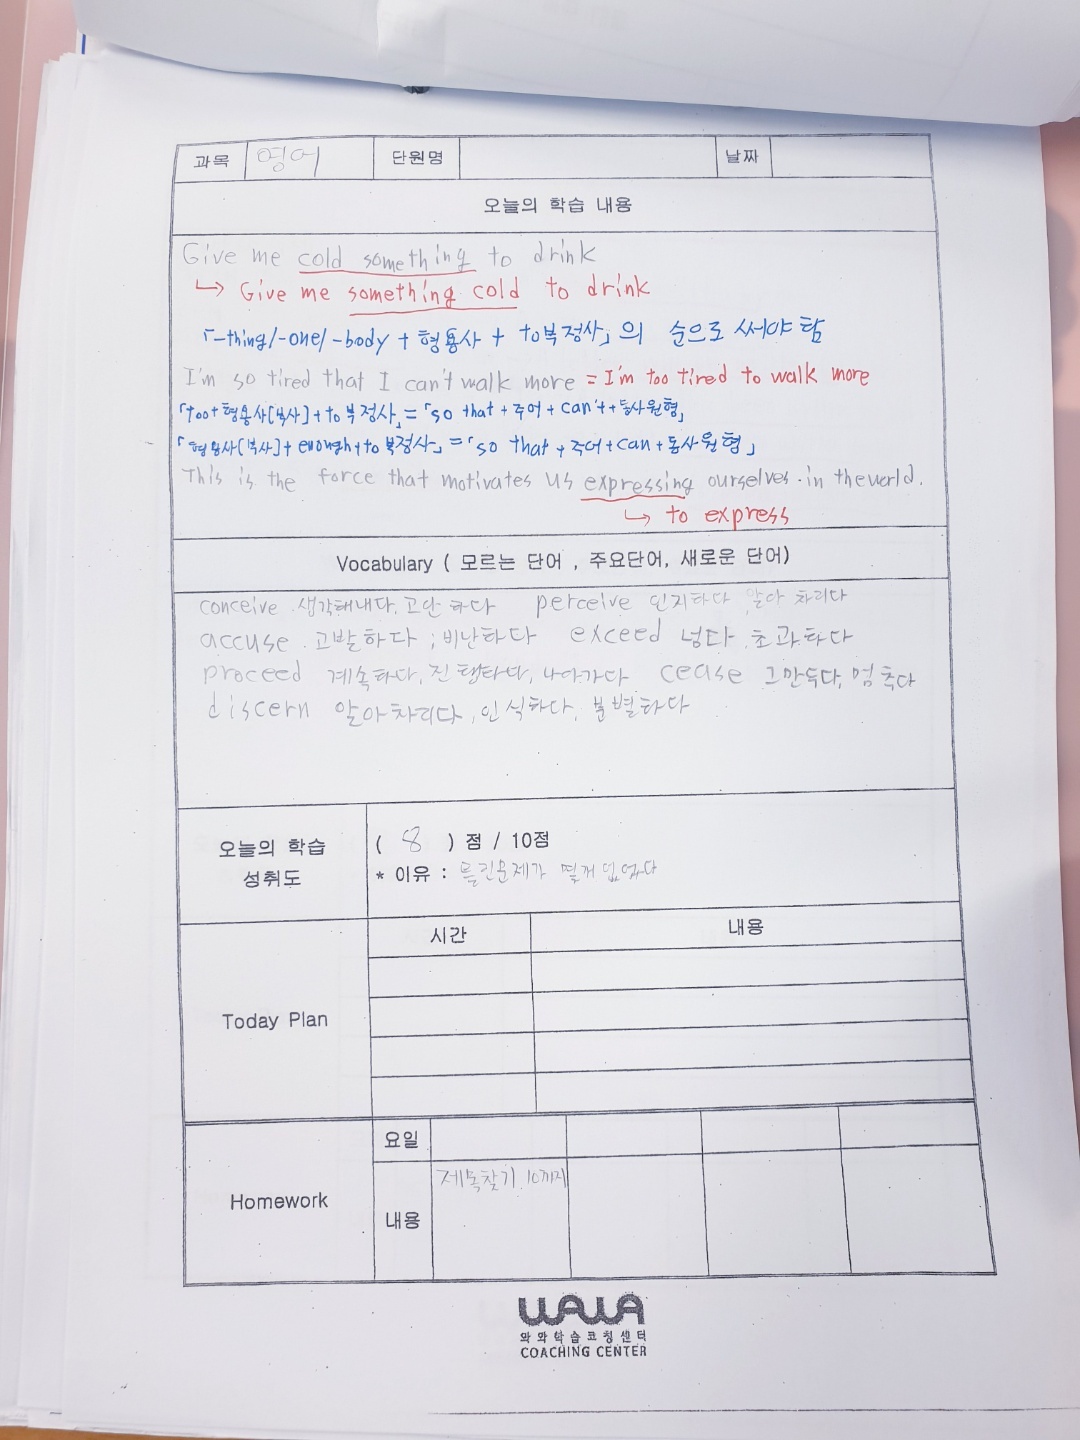 과목 영어 단원명 날짜
오늘의 학습 내용
Give me cold something to drink
↳ Give me something cold to drink
「-thing/-one/-body + 형용사 + to부정사」의 순으로 써야 함
I'm so tired that I can't walk more = I'm too tired to walk more
「too+형용사[부사]+to부정사」=「so that+주어+can't+동사원형」
「형용사[부사]+enough+to부정사」=「so that+주어+can+동사원형」
This is the force that motivates us expressing ourselves in the world.
↳ to express
Vocabulary ( 모르는 단어 , 주요단어, 새로운 단어)
conceive 생각해내다, 고안하다 perceive 인지하다 알아 차리다
accuse 고발하다 ; 비난하다 exceed 넘다, 초과하다
proceed 계속하다, 진행하다, 나아가다 cease 그만두다, 멈추다
discern 알아차리다, 인식하다, 분별하다
오늘의 학습 성취도
( 8 ) 점 / 10점
* 이유 : 틀린문제가 몇개 없었다
시간 내용
Today Plan
요일
Homework
제목찾기 10까지
내용
WAWA
와와학습코칭센터
COACHING CENTER